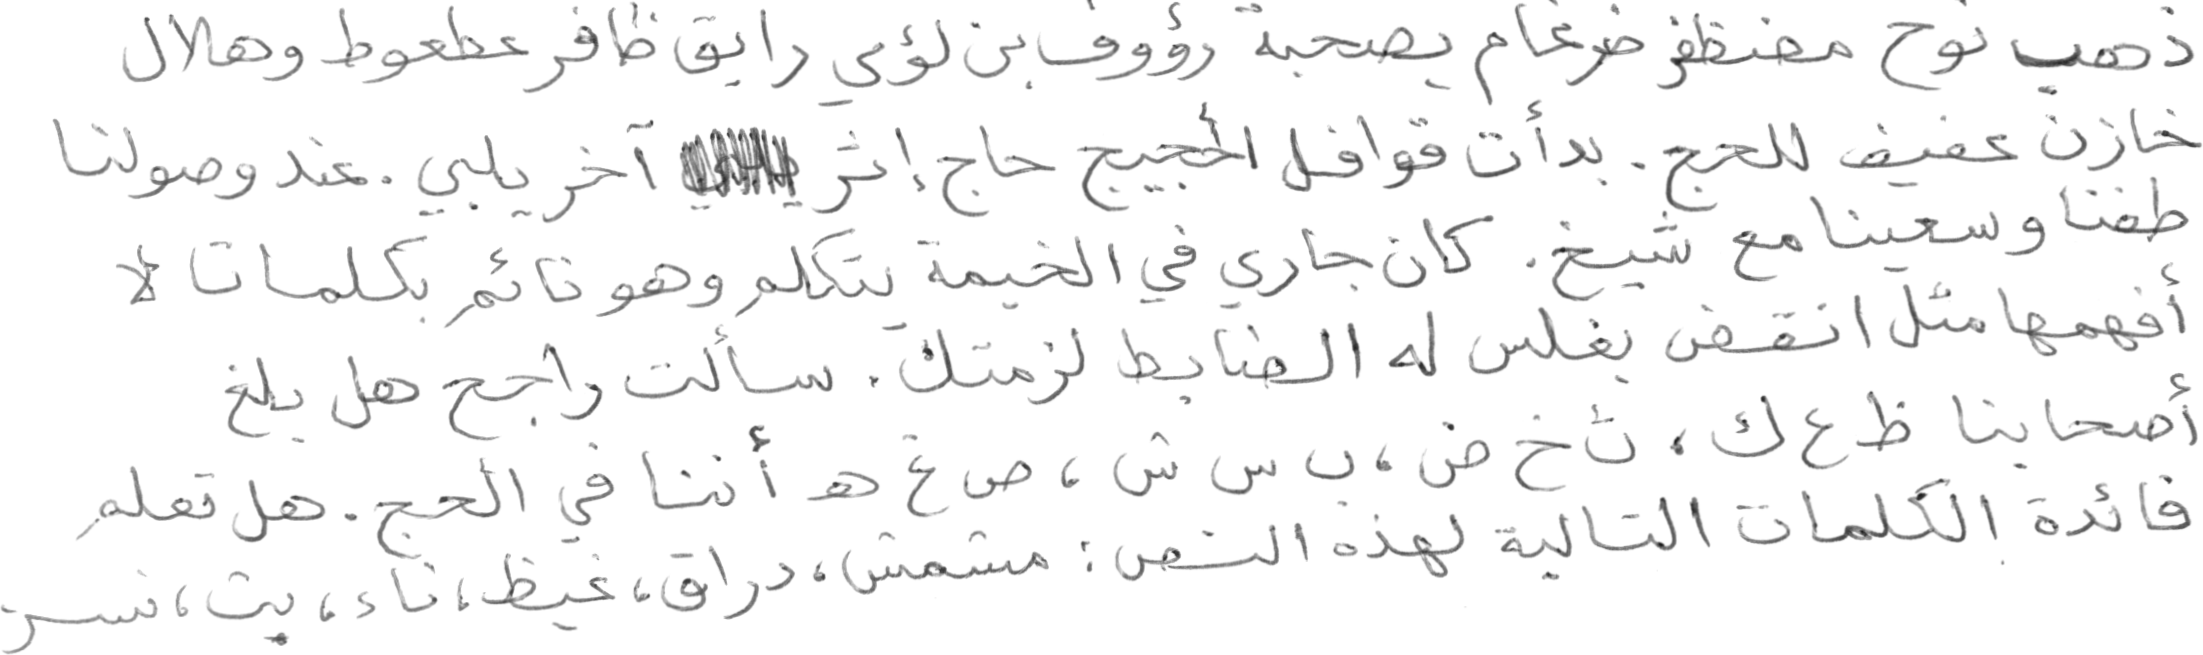 ذهب نوح مضنظفر ضرغام بصحبة رؤوف بن لؤي رايق ظافر عطعوط وهلال
خازن عفيف للحج. بدأت قوافل الحجيج حاج إثر آخر يلبي. عند وصولنا
طفنا وسعينا مع شيخ. كان جاري في الخيمة يتكلم وهو نائم بكلمات لا
أفهمها مثل انقض بغلس له الضابط لزمتك. سألت راجح هل بلغ
أصحابنا ظ ع ك، ث خ ض، ب س ش، ص غ هـ أننا في الحج. هل تعلم
فائدة الكلمات التالية لهذه النص: مشمش، دراق، غيظ، ناء، بت، نسر